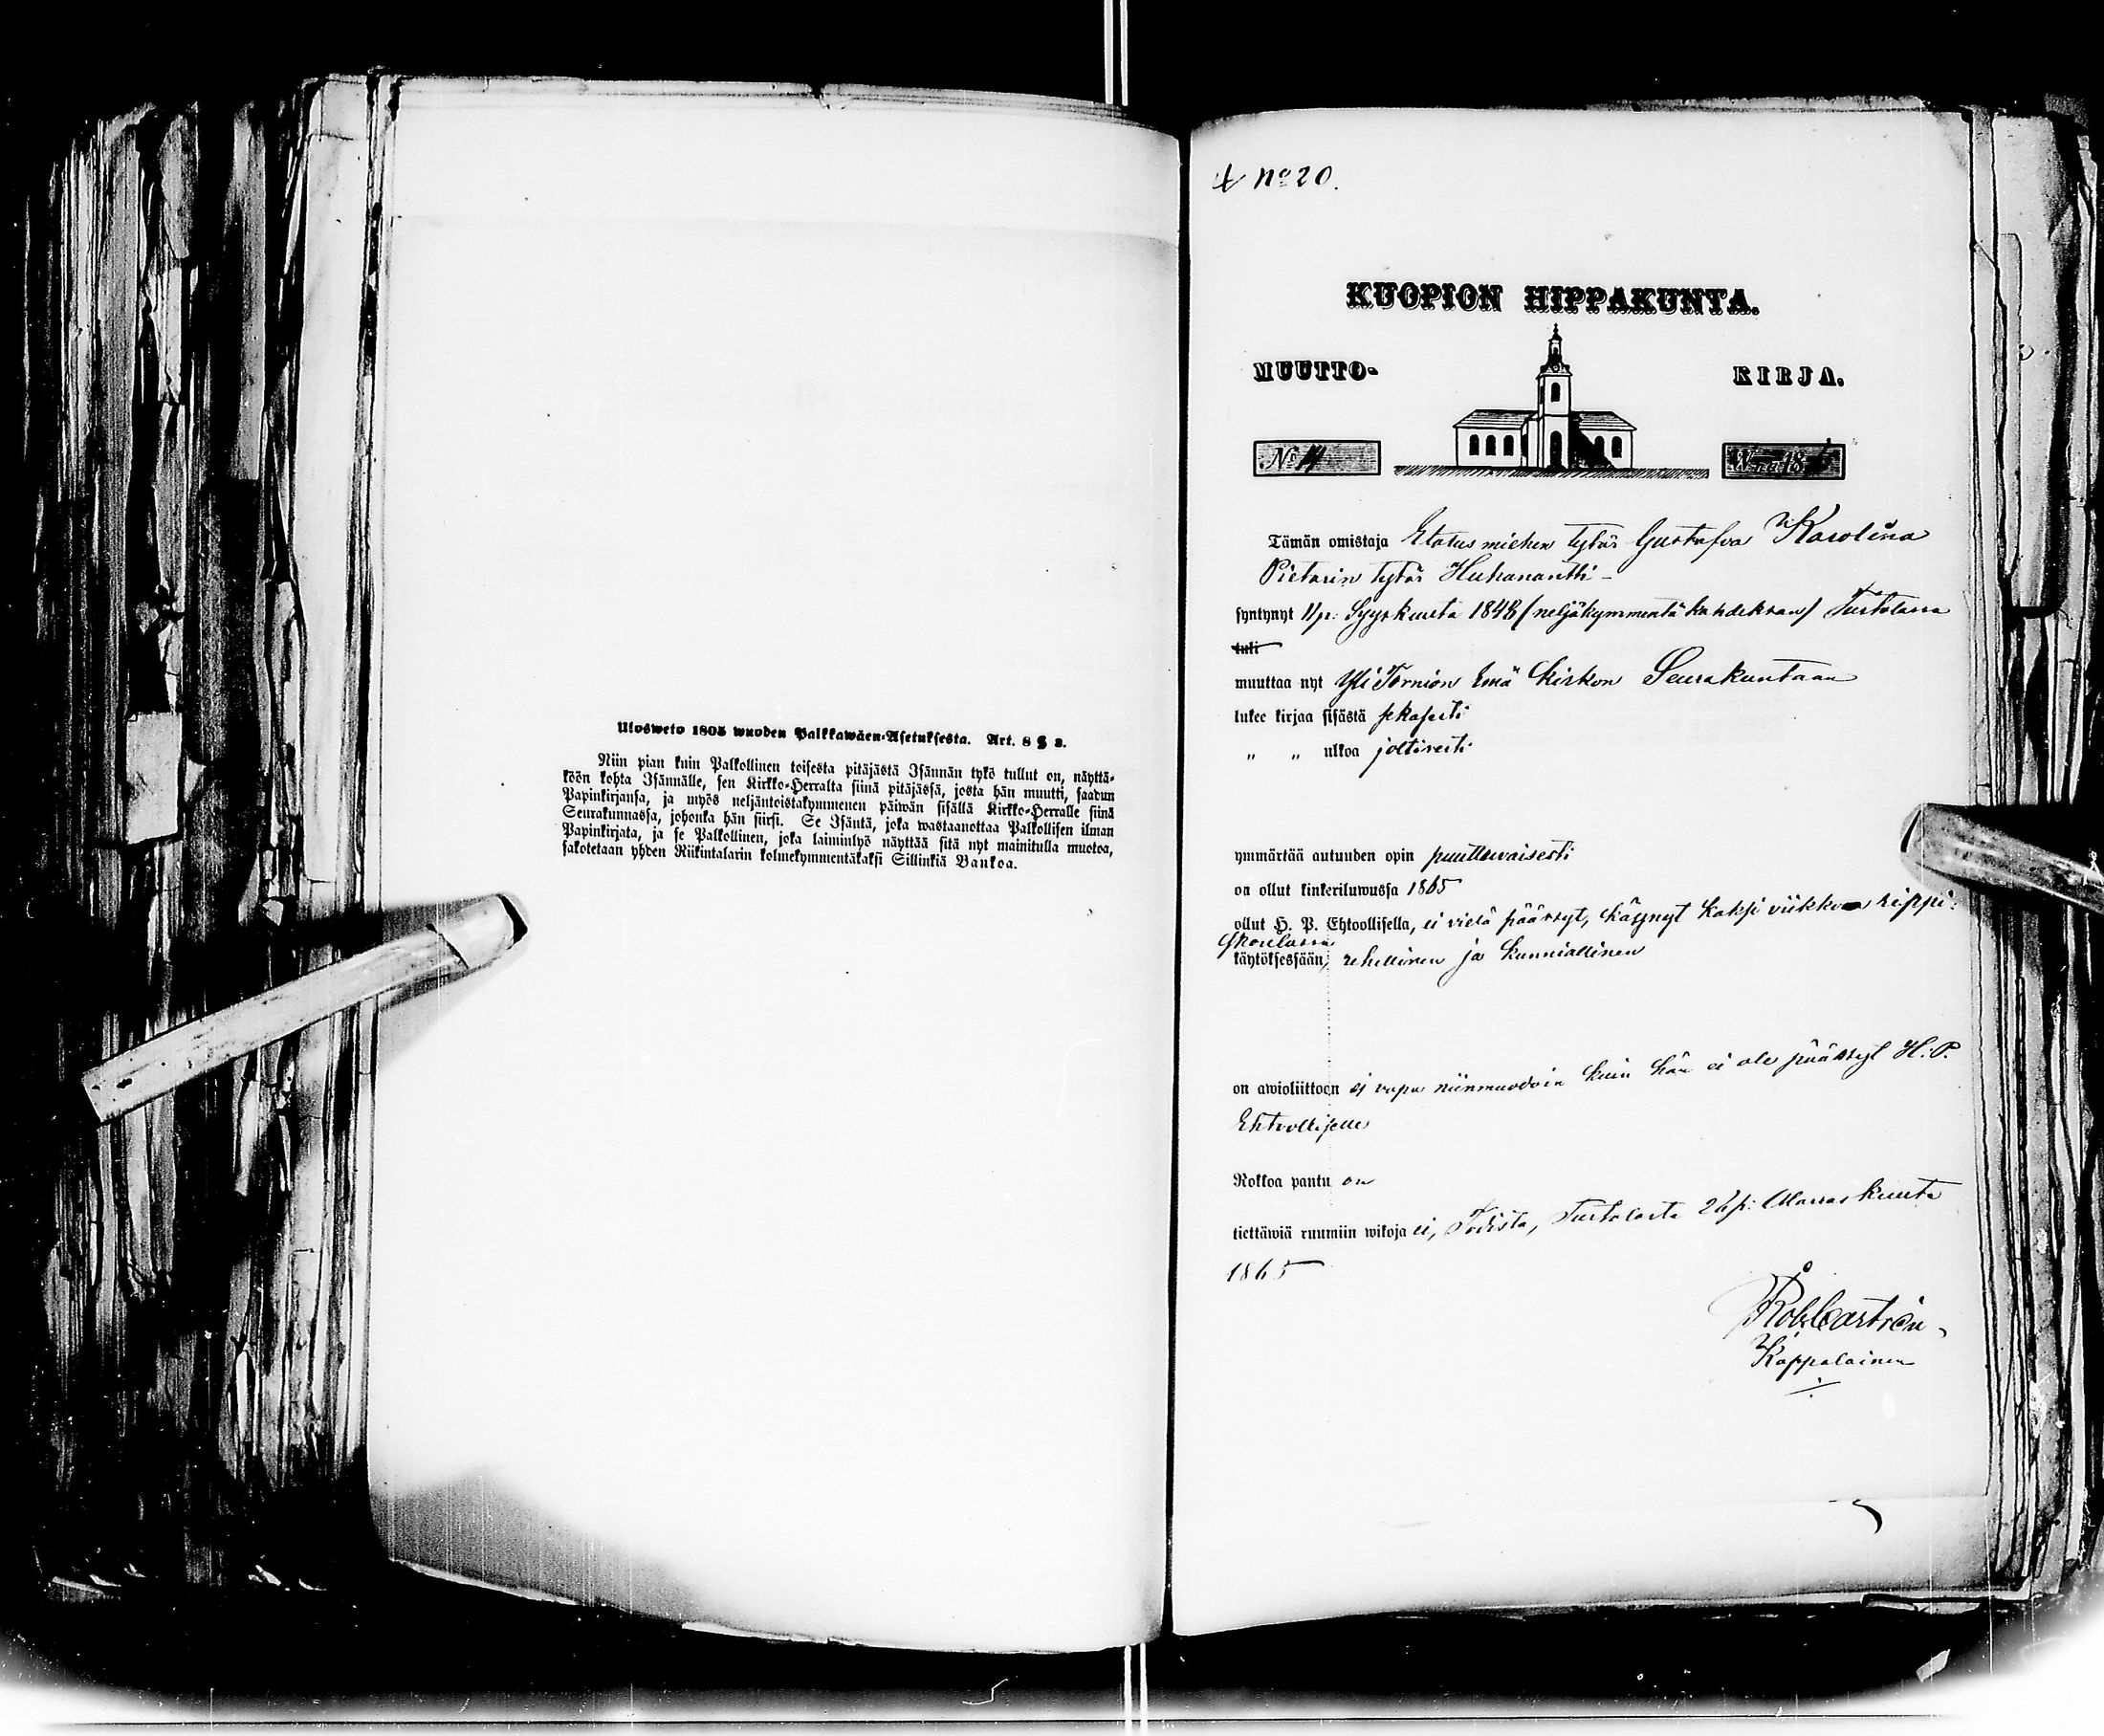 Ulosweto 1805 wuoden Palkkawäen-Asetuksesta. Art. 8 § 3.
Niin pian kuin Palkollinen toisesta pitäjästä Isännän tykö tullut on, näyttä-
köön kohta Isännälle, sen Kirkko-Herralta siinä pitäjässä, josta hän muutti, saadun
Papinkirjansa, ja myös neljäntoistakymmenen päiwän sisällä Kirkko-Herralle siinä
Seurakunnassa, johonka hän siirsi. Se Isäntä, joka wastaanottaa Palkollisen ilman
Papinkirjata, ja se Palkollinen, joka laiminlyö näyttää sitä nyt mainitulla muotoa,
sakotetaan yhden Riikintalarin kolmekymmentäkaksi Sillinkiä Bankoa.
No 20.
KUOPION HIPPAKUNTA.
MUUTTO- KIRJA.
No 11 W:na 186
Tämän omistaja Elatus miehen tytär Gustafva Karolina
Pietarin tytär Huhanantti -
syntynyt 11 p: Syyskuuta 1848 (neljäkymmentä kahdeksan) Turtolassa
tuli
muuttaa nyt Yli Tornion Emä Kirkon Seurakuntaan
lukee kirjaa sisästä sekasesti
" " ulkoa joltisesti
ymmärtää autuuden opin puuttuwaisesti
on ollut kinkeriluwussa 1865
ollut H. P. Ehtoollisella, ei vielä päässyt, käynyt kaksi viikkoa rippi-
skoulussa
käytöksessään, rehellinen ja kunniallinen
on awioliittoon ej vapa niinmuodoin kuin hän ei ole päässyt H. P.
Ehtoolliselle
Rokkoa pantu on
tiettäwiä ruumiin wikoja ei, Todista, Turtolasta p: Marraskuuta
1865
Rob. Castrén
Kappalainen